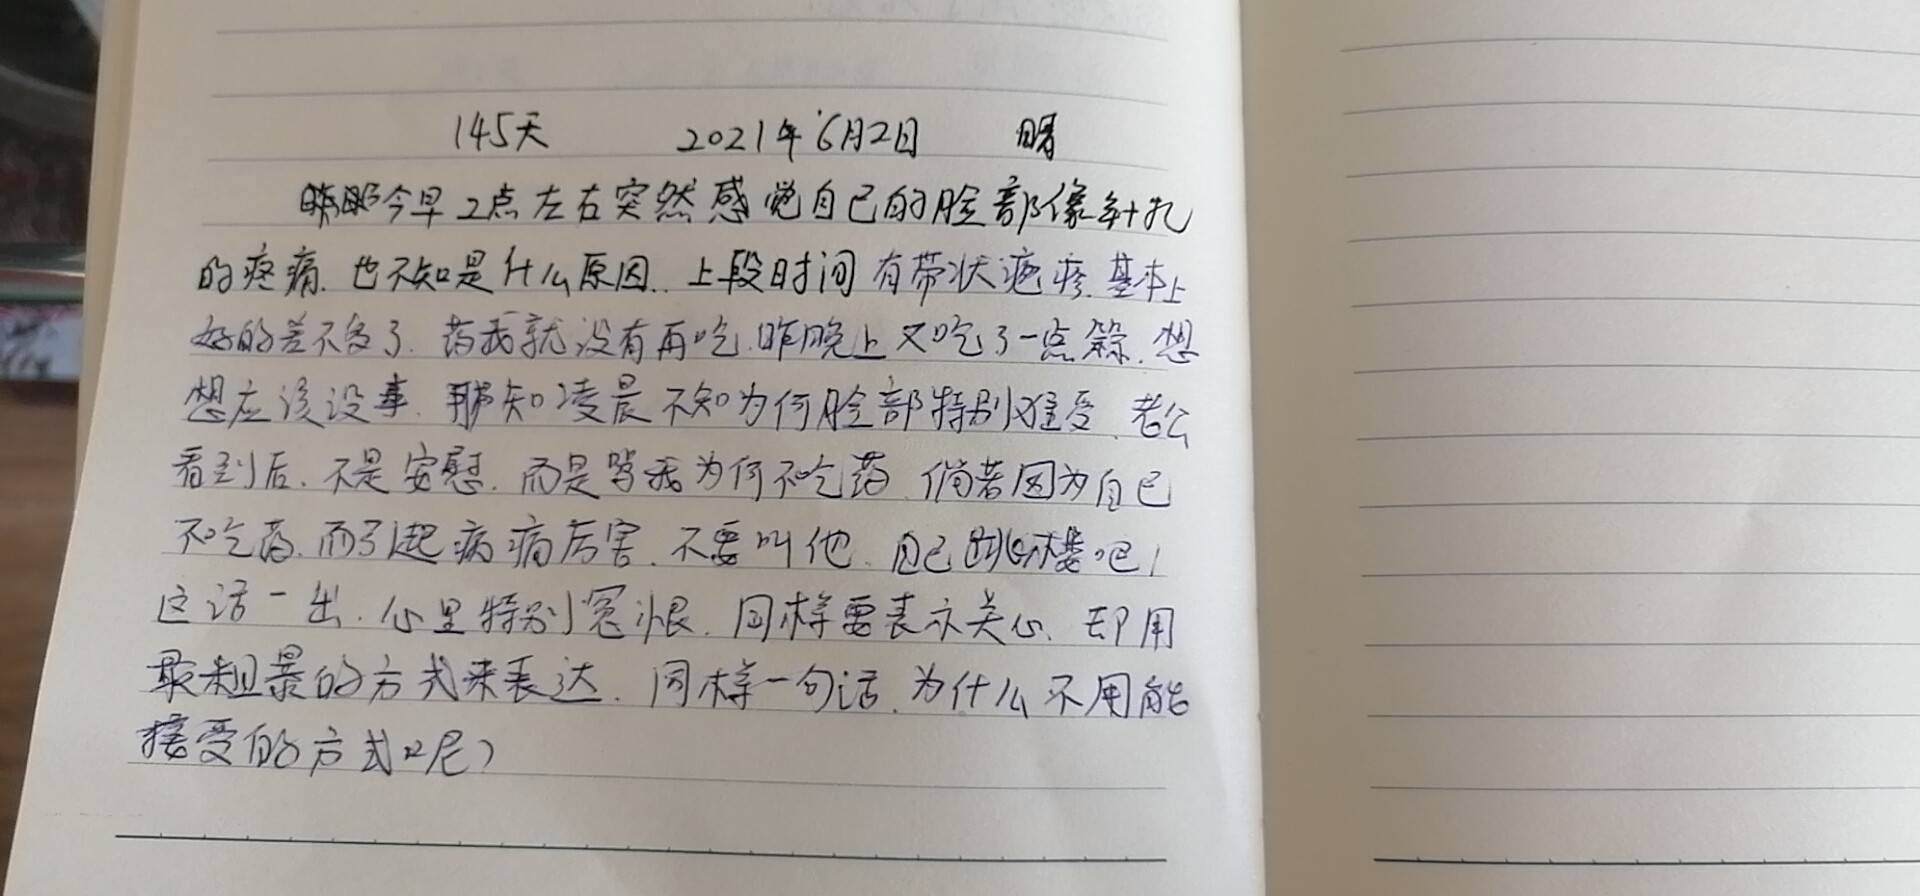 145天 2021年6月2日 晴
今早2点左右突然感觉自己的脸部像针扎
的疼痛.也不知是什么原因..上段时间有带状疱疹.基本上
好的差不多了.药我就没有再吃.昨晚上又吃了一点粽.想
想应该没事.那知凌晨不知为何脸部特别难受.老公
看到后.不是安慰.而是骂我为何不吃药.倘若因为自己
不吃药.而引起病痛厉害.不要叫他.自己跳楼吧!
这话一出.心里特别冤恨.同样要表示关心.却用
最粗暴的方式来表达.同样一句话.为什么不用能
接受的方式呢?